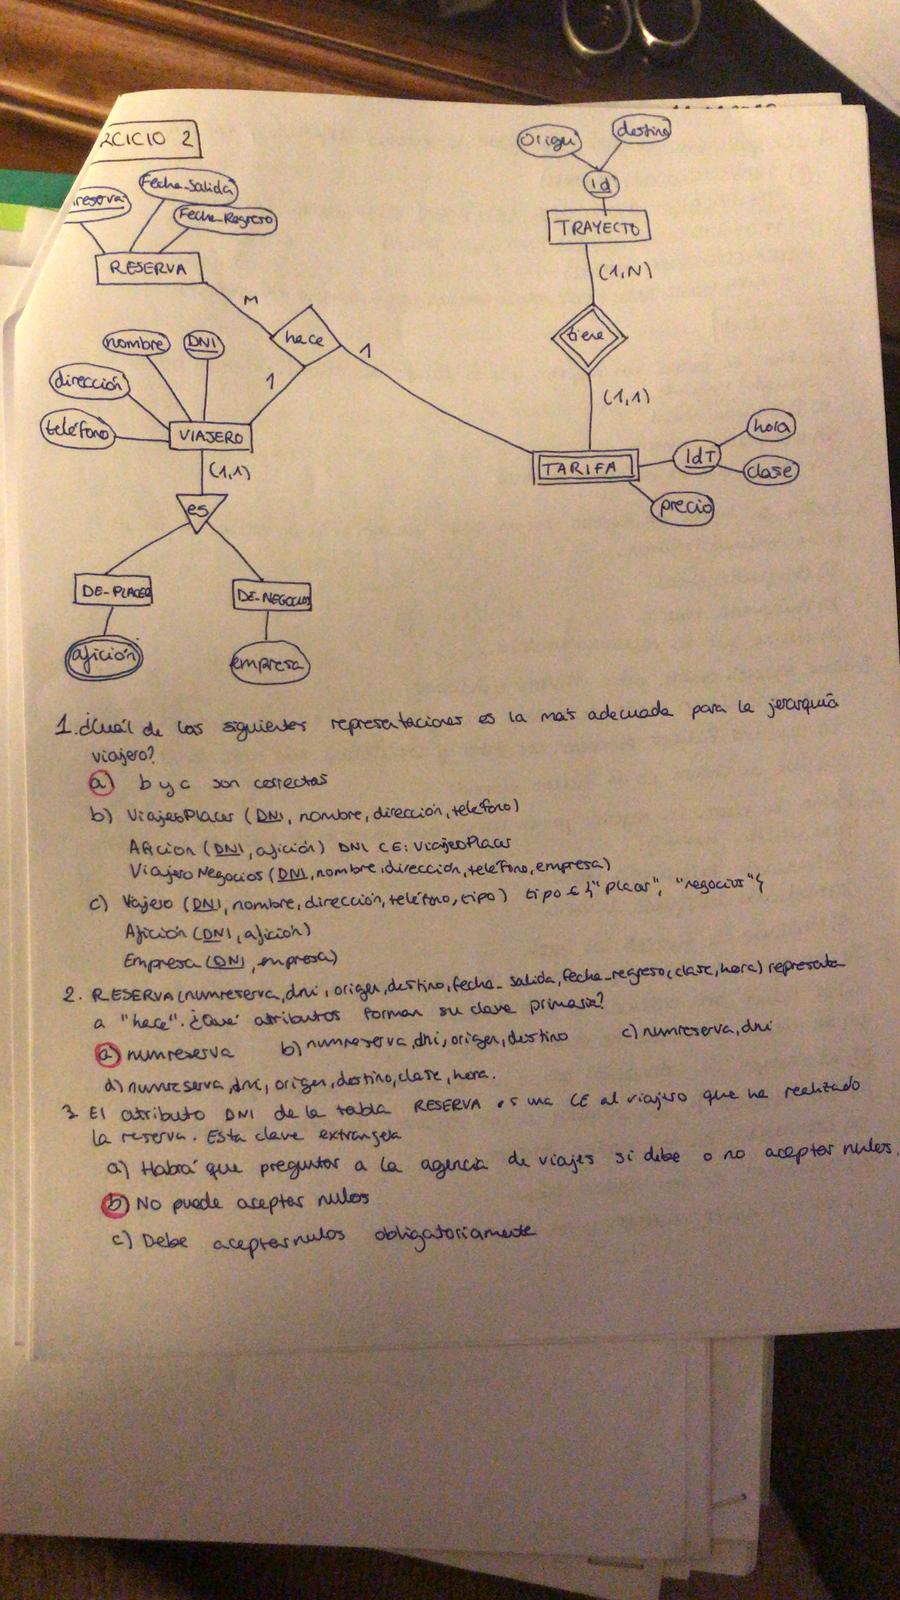 RCICIO 2
reserva
Fecha_salida
Fecha_Regreso
RESERVA
Origen
destino
Id
TRAYECTO
(1,N)
tiene
(1,1)
M
hace
1
1
nombre
DNI
dirección
teléfono
VIAJERO
(1,1)
es
TARIFA
IdT
hora
clase
precio
DE-PLACER
DE-NEGOCIOS
afición
empresa
1. ¿Cuál de las siguientes representaciones es la más adecuada para la jerarquía
viajero?
a) b y c son correctas
b) ViajeoPlacer (DNI, nombre, dirección, teléfono)
Aficion (DNI, afición) DNI CE: ViajeoPlacer
Viajero Negocios (DNI, nombre, dirección, teléfono, empresa)
c) Viajero (DNI, nombre, dirección, teléfono, tipo) tipo ∈ {"placer", "negocios"}
Afición (DNI, afición)
Empresa (DNI, empresa)
2. RESERVA (numreserva, dni, origen, destino, fecha_salida, fecha_regreso, clase, hora) representa
a "hace". ¿Qué atributos forman su clave primaria?
a) numreserva b) numreserva, dni, origen, destino c) numreserva, dni
d) numreserva, dni, origen, destino, clase, hora.
3. El atributo DNI de la tabla RESERVA es una CE al viajero que ha realizado
la reserva. Esta clave extranjera
a) Habrá que preguntar a la agencia de viajes si debe o no aceptar nulos.
b) No puede aceptar nulos
c) Debe aceptar nulos obligatoriamente